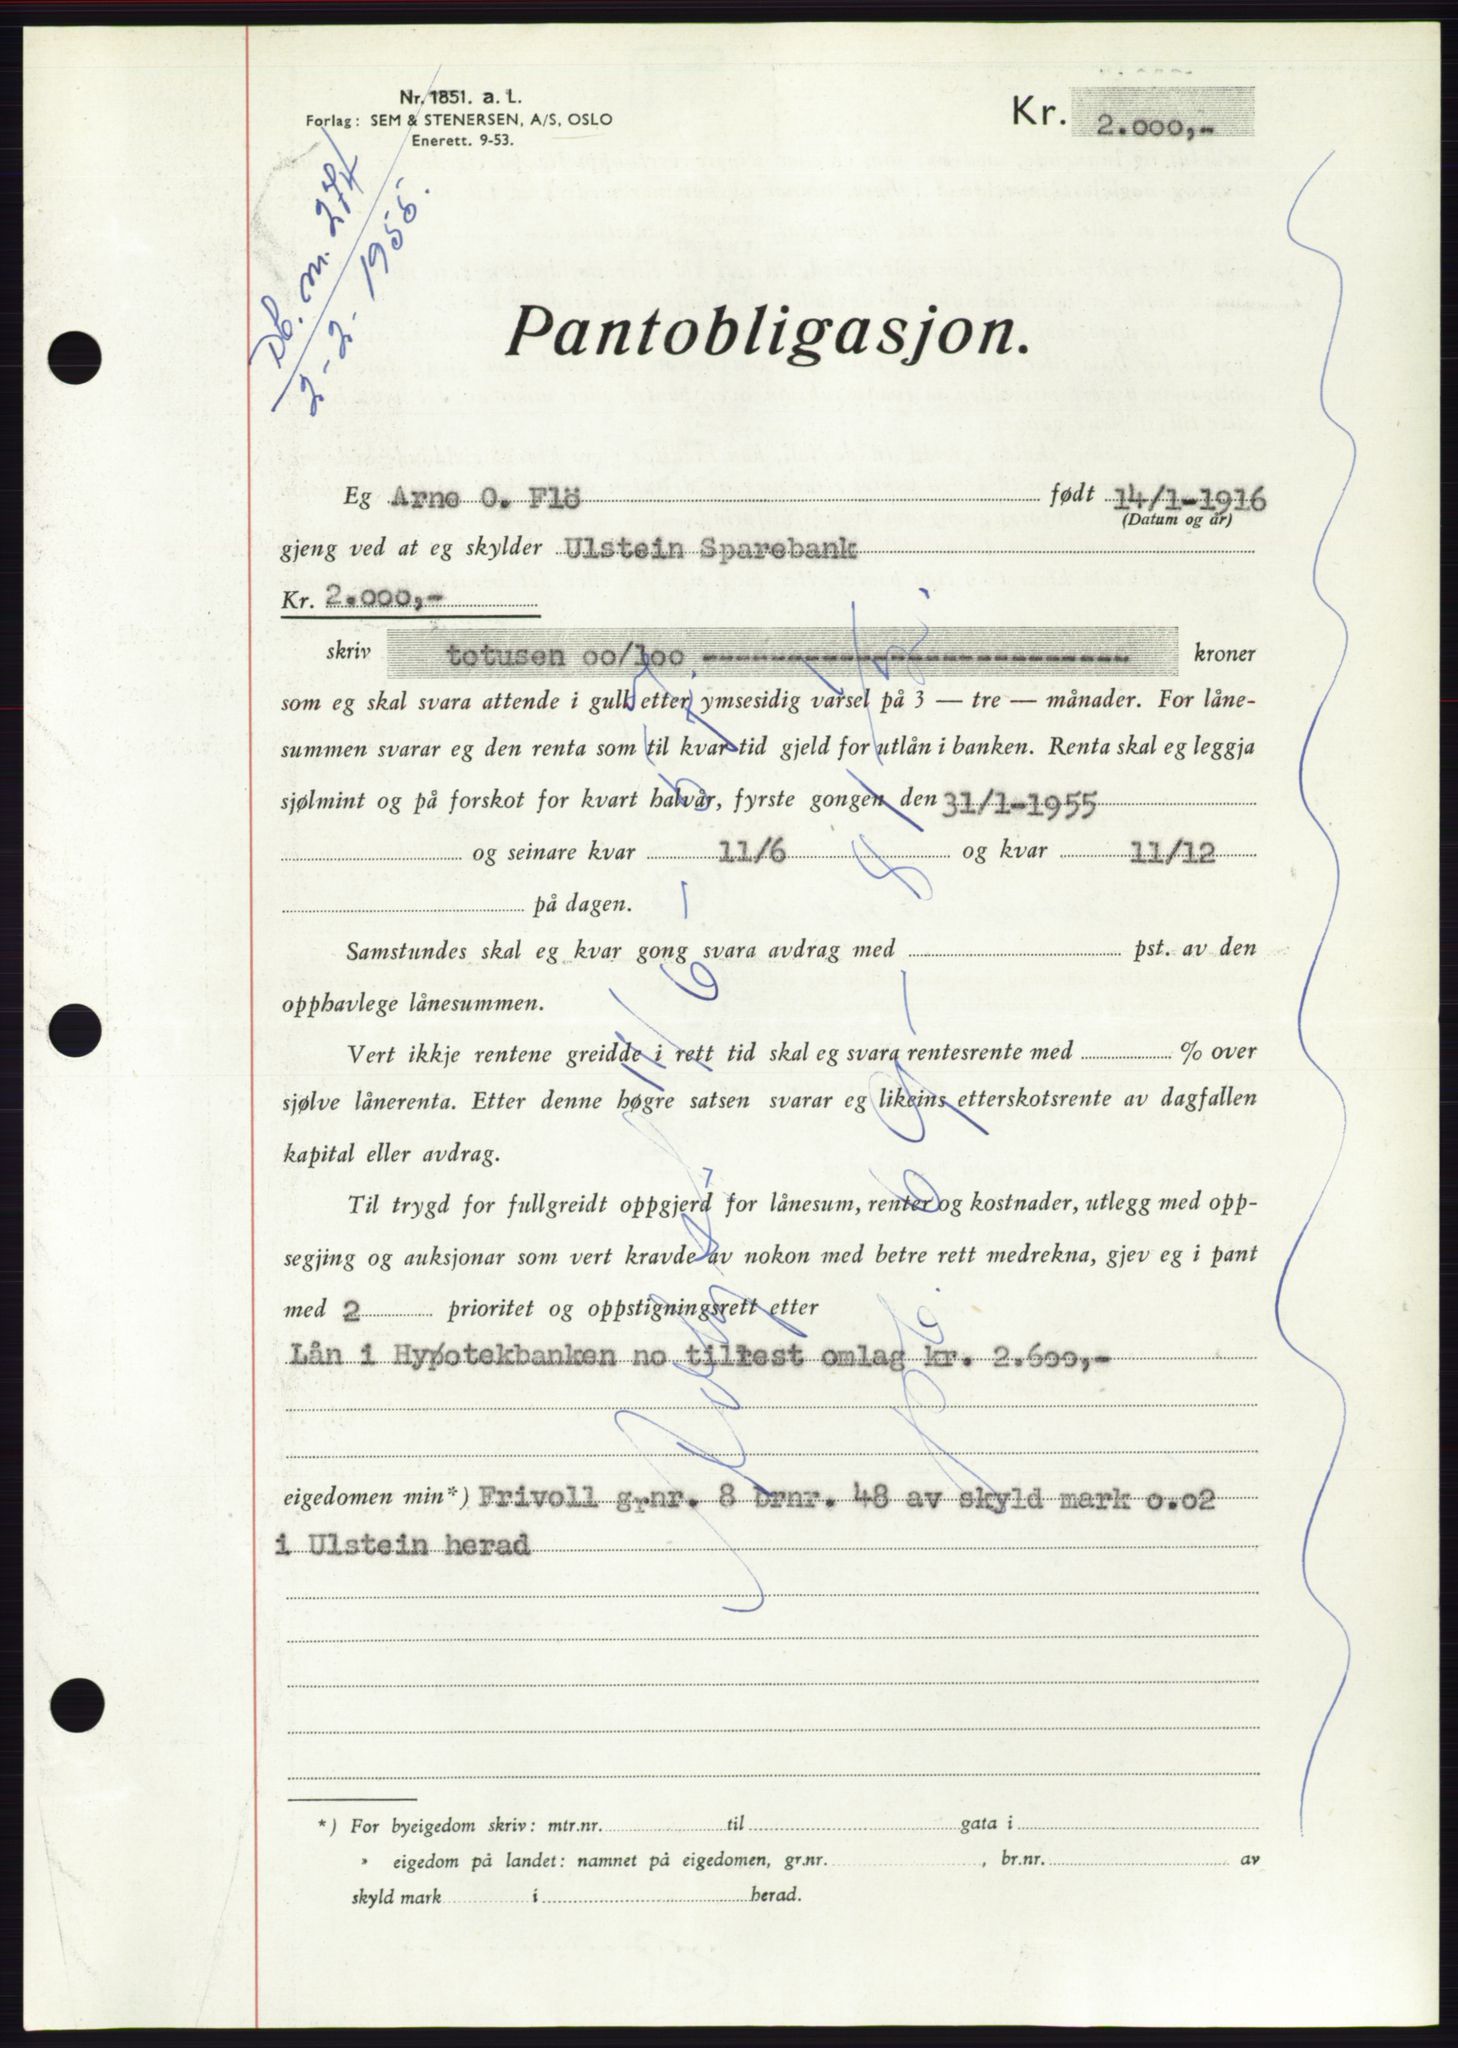 Nr. 1851. a. L.
Forlag: SEM & STENERSEN, A/S, OSLO
Enerett. 9-53.
Kr. 2.000,-
Db. nr. 274
2-2-1955.
Pantobligasjon.
Eg Arne O. Flö født 14/1-1916
(Datum og år)
gjeng ved at eg skylder Ulstein Sparebank
Kr. 2.000,-
skriv totusen oo/1oo ---------------------------- kroner
som eg skal svara attende i gull etter ymsesidig varsel på 3 — tre — månader. For låne-
summen svarar eg den renta som til kvar tid gjeld for utlån i banken. Renta skal eg leggja
sjølmint og på forskot for kvart halvår, fyrste gongen den 31/1-1955
og seinare kvar 11/6 og kvar 11/12
på dagen.
Samstundes skal eg kvar gong svara avdrag med pst. av den
opphavlege lånesummen.
Vert ikkje rentene greidde i rett tid skal eg svara rentesrente med % over
sjølve lånerenta. Etter denne høgre satsen svarar eg likeins etterskotsrente av dagfallen
kapital eller avdrag.
Til trygd for fullgreidt oppgjerd for lånesum, renter og kostnader, utlegg med opp-
segjing og auksjonar som vert kravde av nokon med betre rett medrekna, gjev eg i pant
med 2 prioritet og oppstigningsrett etter
Lån i Hypotekbanken no tilrest omlag kr. 2.600,-
eigedomen min*) Frivoll g.nr. 8 brnr. 48 av skyld mark o.o2
i Ulstein herad
*) For byeigedom skriv: mtr.nr. til gata i
» eigedom på landet: namnet på eigedomen, gr.nr. , br.nr. av
skyld mark i herad.